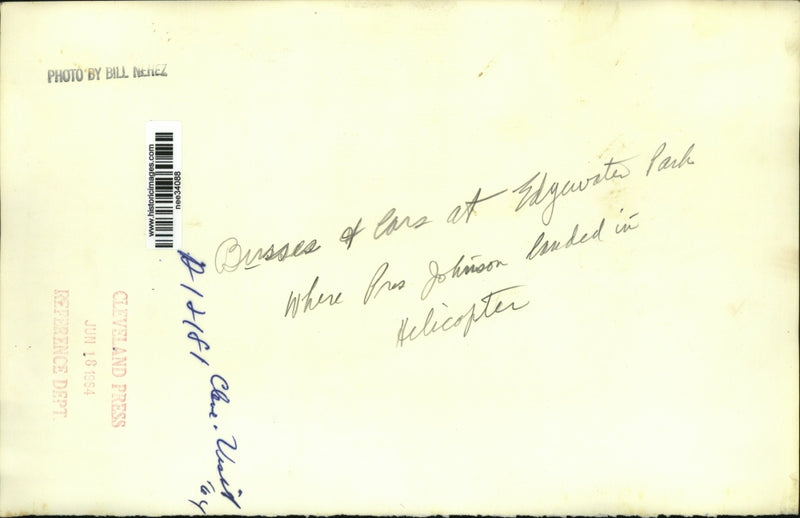 PHOTO BY BILL NEREZ
www.historicimages.com
nee34088
Busses & Cars at Edgewater Park
Where Pres Johnson landed in
Helicopter
D-12181 Cleve. Visit
64
CLEVELAND PRESS
JUN 18 1964
REFERENCE DEPT.